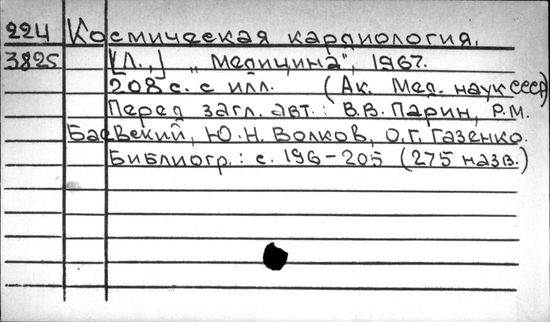 224 Космическая кардиология.
3825 [Л.,] „Медицина", 1967.
208 с. с илл. (Ак. Мед. наук СССР)
Перед загл. авт.: В.В. Парин, Р.М.
Баевский, Ю.Н. Волков, О.Г. Газенко.
Библиогр.: с. 196-205 (275 назв.)